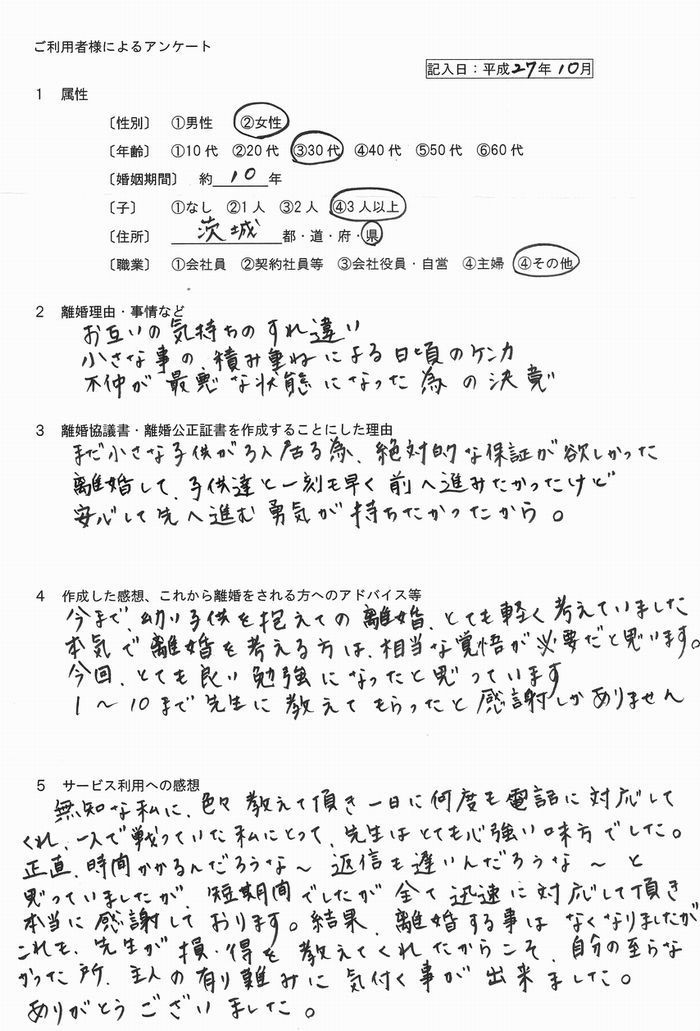 ご利用者様によるアンケート
記入日：平成27年10月
1 属性
〔性別〕 ①男性 ②女性
〔年齢〕 ①10代 ②20代 ③30代 ④40代 ⑤50代 ⑥60代
〔婚姻期間〕 約 10 年
〔子〕 ①なし ②1人 ③2人 ④3人以上
〔住所〕 茨城 都・道・府・県
〔職業〕 ①会社員 ②契約社員等 ③会社役員・自営 ④主婦 ④その他
2 離婚理由・事情など
お互いの気持ちのすれ違い
小さな事の積み重ねによる日頃のケンカ
不仲が最悪な状態になった為の決意
3 離婚協議書・離婚公正証書を作成することにした理由
まだ小さな子供が3人居る為、絶対的な保証が欲しかった
離婚して、子供達と一刻も早く前へ進みたかったけど
安心して先へ進む勇気が持ちたかったから。
4 作成した感想、これから離婚をされる方へのアドバイス等
今まで、幼い子供を抱えての離婚、とても軽く考えていました
本気で離婚を考える方は、相当な覚悟が必要だと思います。
今回、とても良い勉強になったと思っています
1～10まで先生に教えてもらったと感謝しかありません
5 サービス利用への感想
無知な私に、色々教えて頂き一日に何度も電話に対応して
くれ、一人で戦っていた私にとって、先生はとても心強い味方でした。
正直、時間かかるんだろうな～返信も遅いんだろうな～と
思っていましたが、短期間でしたが全て迅速に対応して頂き
本当に感謝しております。結果、離婚する事はなくなりましたが
これも、先生が損・得を教えてくれたからこそ、自分の至らな
かった所、主人の有り難みに気付く事が出来ました。
ありがとうございました。